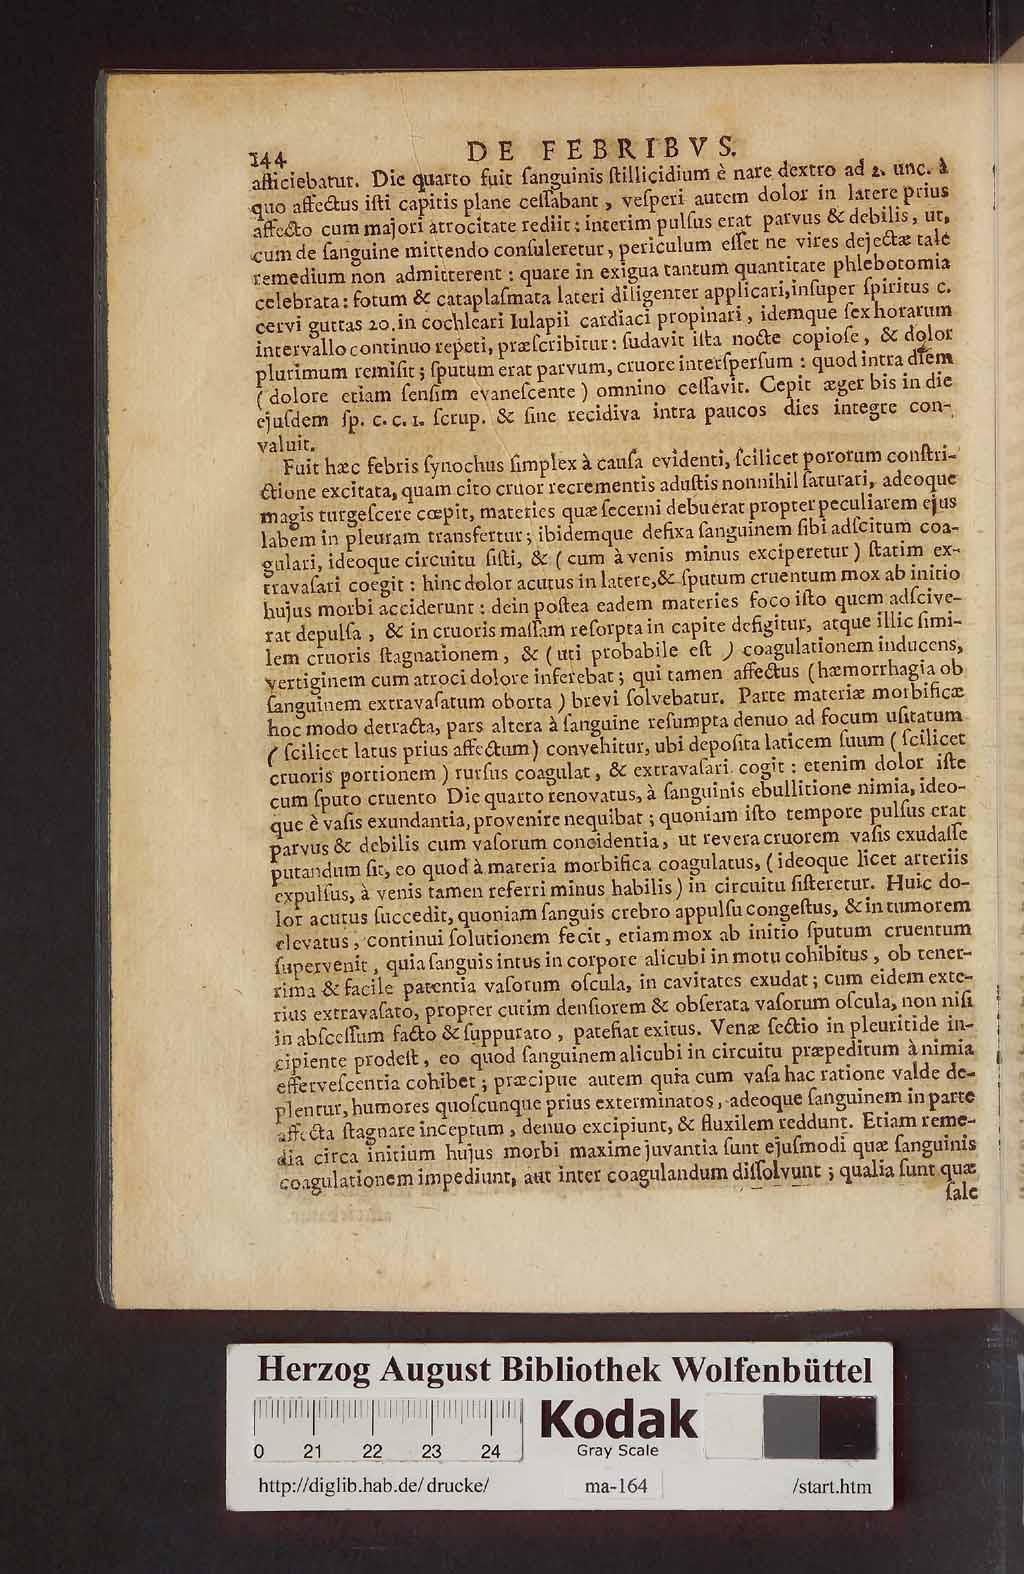 144 DE FEBRIBVS.
afficiebatur. Die quarto fuit ſanguinis ſtillicidium è nare dextro ad 2. unc. à
quo affectus iſti capitis plane ceſſabant, veſperi autem dolor in latere prius
affecto cum majori atrocitate rediit: interim pulſus erat parvus & debilis, ut,
cum de ſanguine mittendo conſuleretur, periculum eſſet ne vires dejectæ tale
remedium non admitterent: quare in exigua tantum quantitate phlebotomia
celebrata: fotum & cataplaſmata lateri diligenter applicari, inſuper ſpiritus c.
cervi guttas 20. in cochleari Iulapii cardiaci propinari, idemque ſex horarum
intervallo continuo repeti, præſcribitur: ſudavit iſta nocte copioſe, & dolor
plurimum remiſit; ſputum erat parvum, cruore interſperſum: quod intra diem
(dolore etiam ſenſim evaneſcente) omnino ceſſavit. Cepit æger bis in die
ejuſdem ſp. c. c. 1. ſcrup. & ſine recidiva intra paucos dies integre con-
valuit.
Fuit hæc febris ſynochus ſimplex à cauſa evidenti, ſcilicet pororum conſtri-
ctione excitata, quam cito cruor recrementis aduſtis nonnihil ſaturari, adeoque
magis turgeſcere cœpit, materies quæ ſecerni debuerat propter peculiarem ejus
labem in pleuram transfertur; ibidemque defixa ſanguinem ſibi adſcitum coa-
gulari, ideoque circuitu ſiſti, & (cum à venis minus exciperetur) ſtatim ex-
travaſari coegit: hinc dolor acutus in latere, & ſputum cruentum mox ab initio
hujus morbi acciderunt: dein poſtea eadem materies foco iſto quem adſcive-
rat depulſa, & in cruoris maſſam reſorpta in capite defigitur, atque illic ſimi-
lem cruoris ſtagnationem, & (uti probabile eſt) coagulationem inducens,
vertiginem cum atroci dolore inferebat; qui tamen affectus (hæmorrhagia ob
ſanguinem extravaſatum oborta) brevi ſolvebatur. Parte materiæ morbificæ
hoc modo detracta, pars altera à ſanguine reſumpta denuo ad focum uſitatum
(ſcilicet latus prius affectum) convehitur, ubi depoſita laticem ſuum (ſcilicet
cruoris portionem) rurſus coagulat, & extravaſari cogit: etenim dolor iſte
cum ſputo cruento Die quarto renovatus, à ſanguinis ebullitione nimia, ideo-
que è vaſis exundantia, provenire nequibat; quoniam iſto tempore pulſus erat
parvus & debilis cum vaſorum concidentia, ut revera cruorem vaſis exudaſſe
putandum ſit, eo quod à materia morbifica coagulatus, (ideoque licet arteriis
expulſus, à venis tamen referri minus habilis) in circuitu ſiſteretur. Huic do-
lor acutus ſuccedit, quoniam ſanguis crebro appulſu congeſtus, & in tumorem
elevatus, continui ſolutionem fecit, etiam mox ab initio ſputum cruentum
ſupervenit, quia ſanguis intus in corpore alicubi in motu cohibitus, ob tener-
rima & facile patentia vaſorum oſcula, in cavitates exudat; cum eidem exte-
rius extravaſato, propter cutim denſiorem & obſerata vaſorum oſcula, non niſi
in abſceſſum facto & ſuppurato, patefiat exitus. Venæ ſectio in pleuritide in-
cipiente prodeſt, eo quod ſanguinem alicubi in circuitu præpeditum à nimia
efferveſcentia cohibet; præcipue autem quia cum vaſa hac ratione valde de-
plentur, humores quoſcunque prius exterminatos, adeoque ſanguinem in parte
affecta ſtagnare inceptum, denuo excipiunt, & fluxilem reddunt. Etiam reme-
dia circa initium hujus morbi maxime juvantia ſunt ejuſmodi quæ ſanguinis
coagulationem impediunt, aut inter coagulandum diſſolvunt; qualia ſunt quæ
ſale
Herzog August Bibliothek Wolfenbüttel
0 21 22 23 24
Kodak
Gray Scale
http://diglib.hab.de/drucke/ ma-164 /start.htm